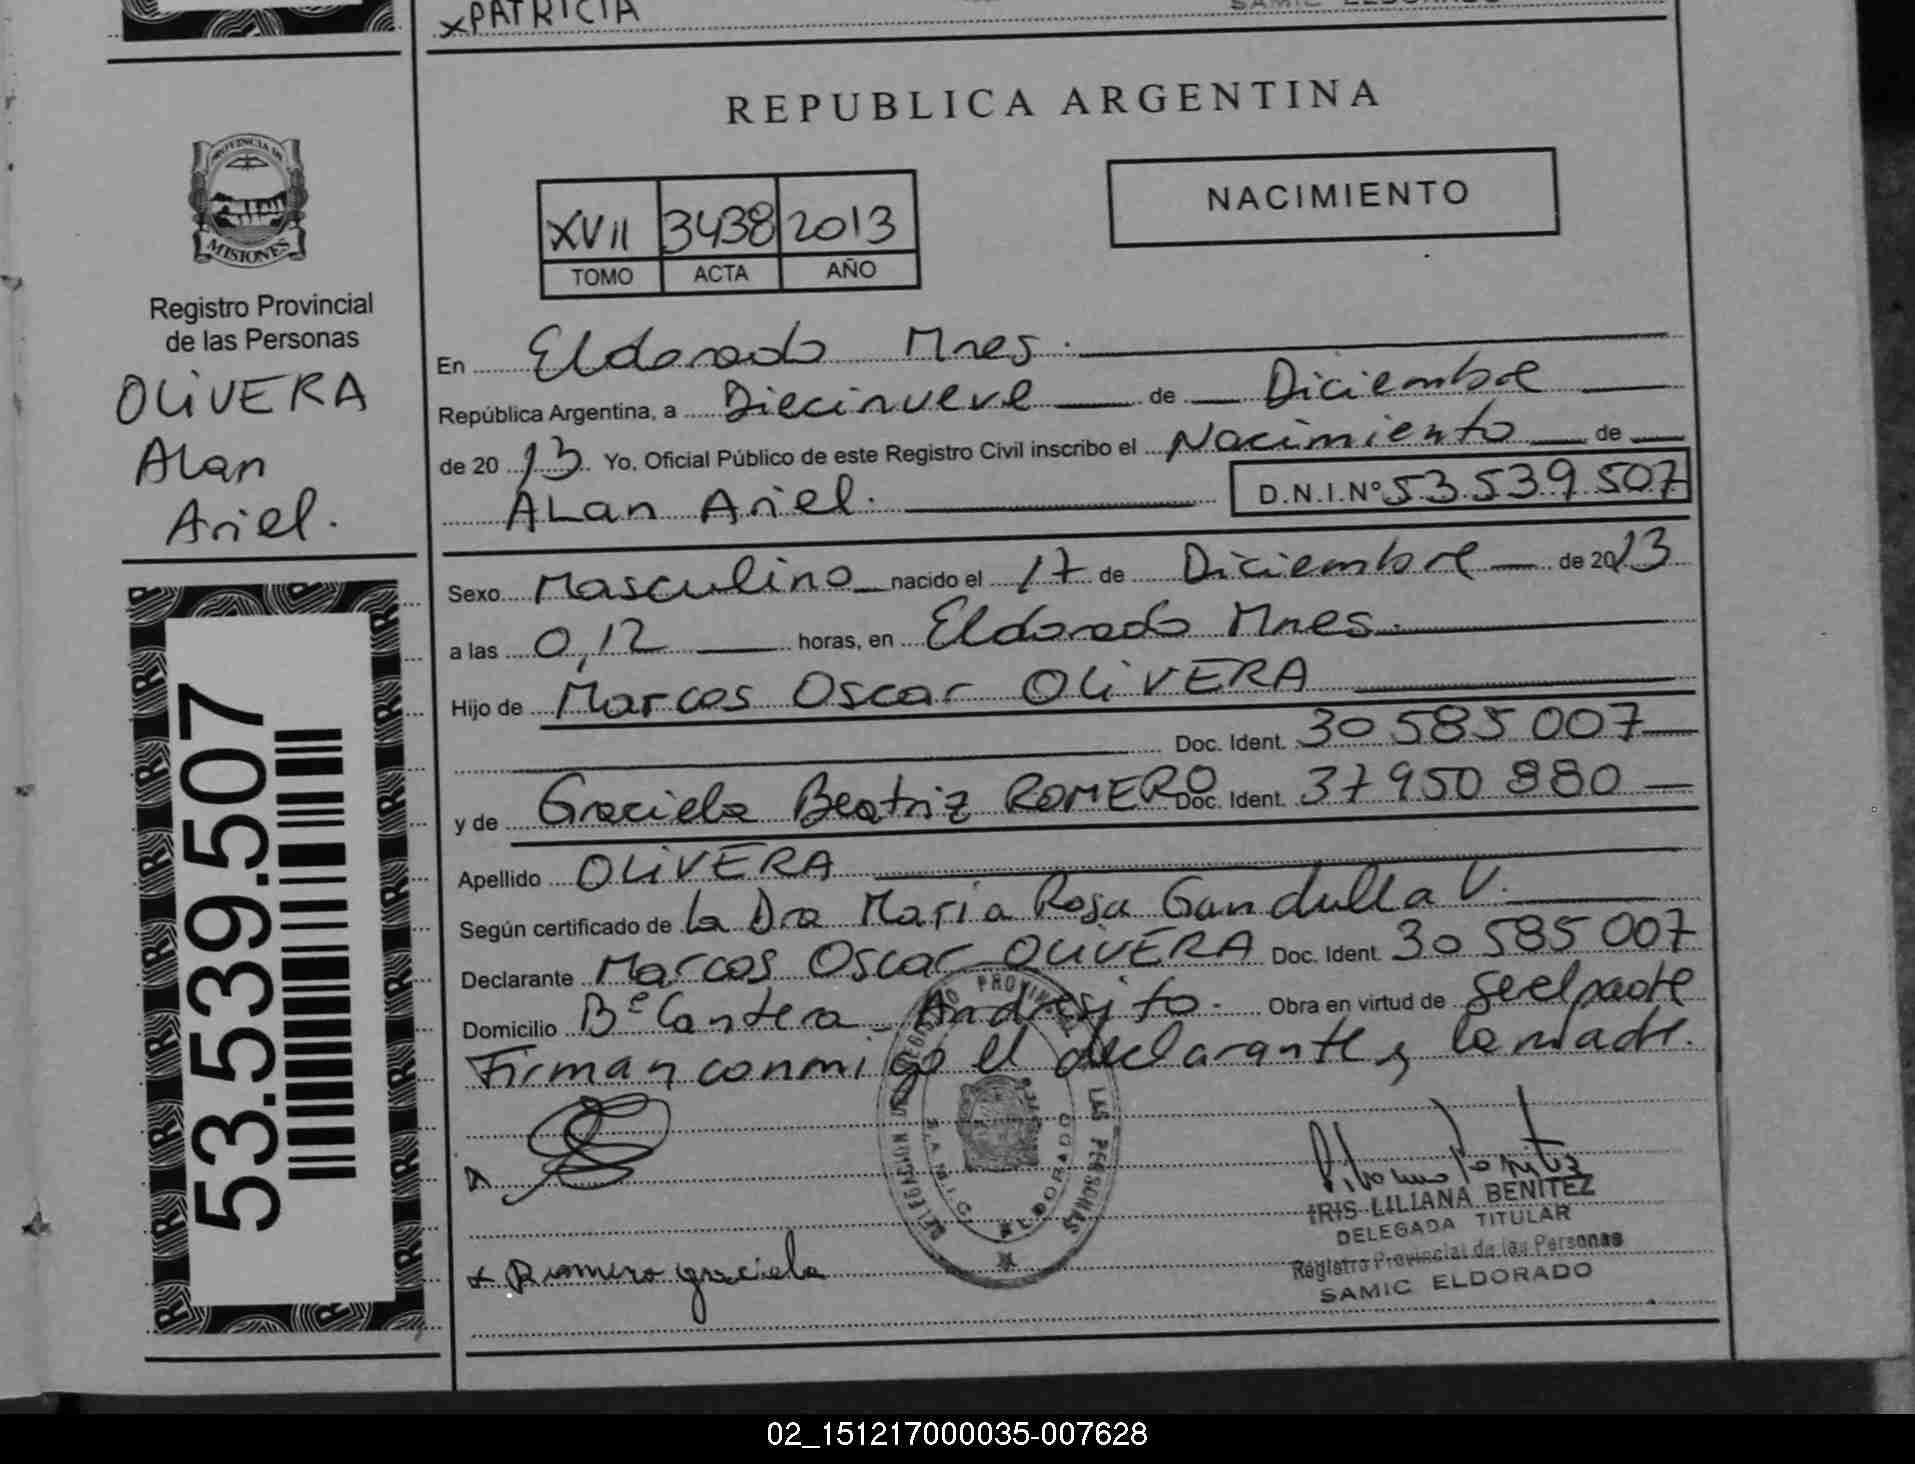 xPATRICIA
SAMIC ELDORADO
REPUBLICA ARGENTINA
PROVINCIA DE
MISIONES
Registro Provincial
de las Personas
OLiVERA
Alan
Ariel.
XVII 3438 2013
TOMO ACTA AÑO
NACIMIENTO
En Eldorado Mnes.
República Argentina, a Diecinueve de Diciembre
de 2013. Yo, Oficial Público de este Registro Civil inscribo el Nacimiento de
ALan Ariel. D.N.I.Nº 53.539.507
Sexo Masculino nacido el 17 de Diciembre de 2013
a las 0,12 horas, en Eldorado Mnes.
Hijo de Marcos Oscar OLiVERA
Doc. Ident. 30 585 007
y de Graciela Beatriz ROMERO Doc. Ident. 37 950 880
Apellido OLiVERA
Según certificado de La Dra Maria Rosa Gandulla V.
Declarante Marcos Oscar OLiVERA Doc. Ident. 30 585 007
Domicilio Bº Cantera - Andresito. Obra en virtud de ser el padre
Firman conmigo el declarante y la madre.
53.539.507
DELEGACION DEL REGISTRO PROVINCIAL DE LAS PERSONAS
S.A.M.I.C. ELDORADO
x Romero graciela
IRIS LILIANA BENITEZ
DELEGADA TITULAR
Registro Provincial de las Personas
SAMIC ELDORADO
02_151217000035-007628